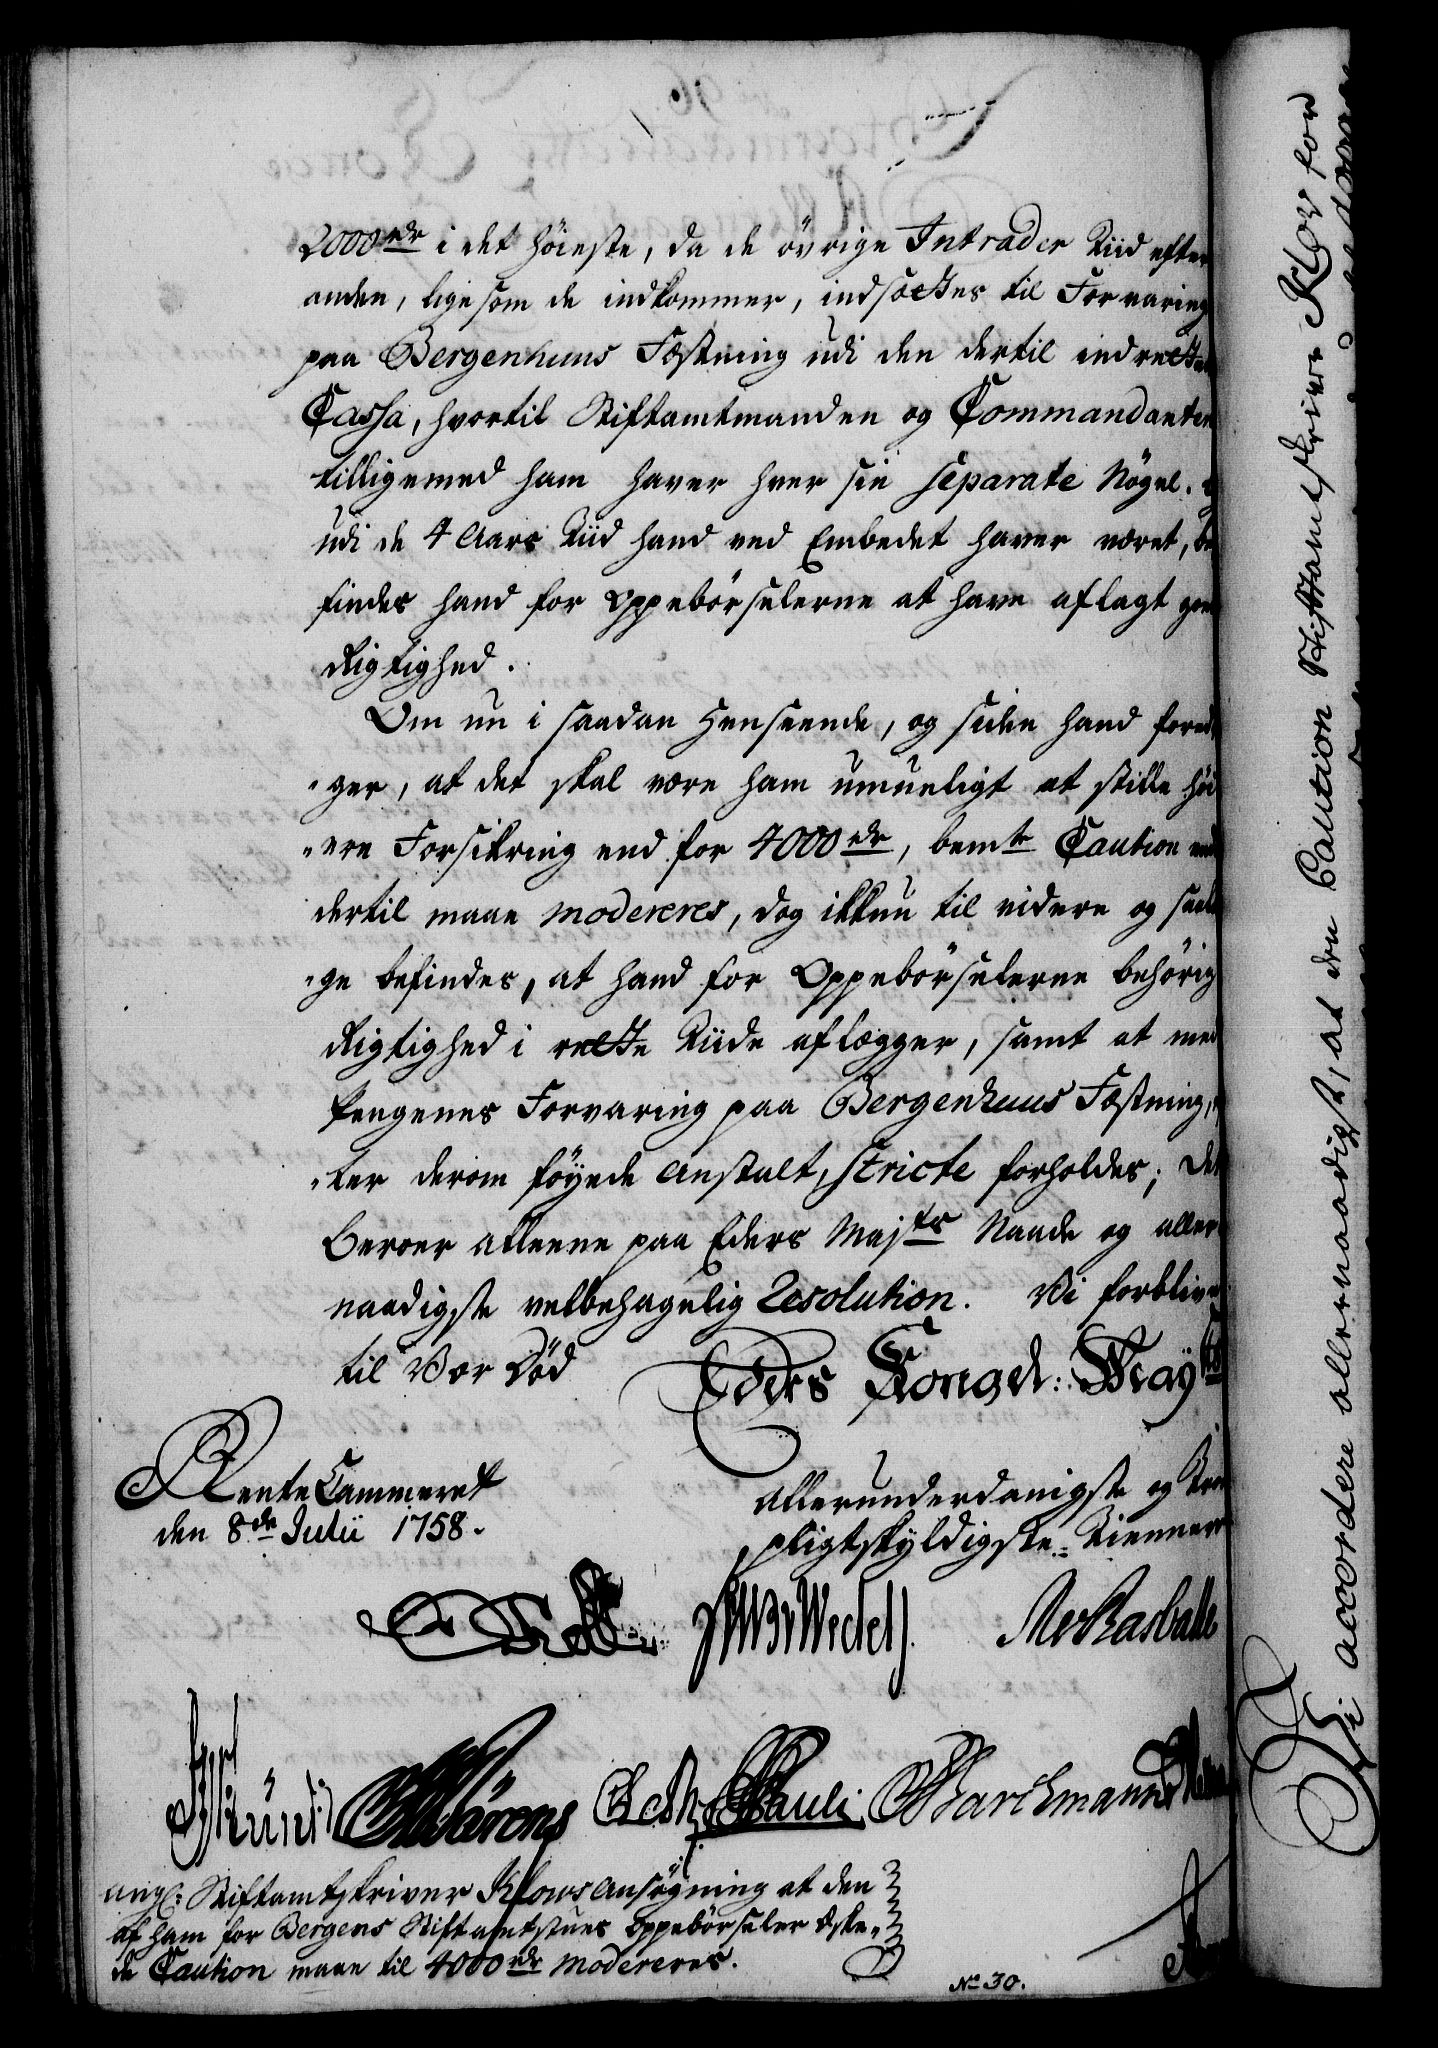 2000 rdr i det høieste, da de øvrige Intrader Tiid efter
anden, ligesom de indkommer, indsættes til Forvaring
paa Bergenhuus Fæstning udi den dertil indrettede
Cassa, hvortil Stiftamtmanden og Commandanten
tilligemed ham haver hver sin separate Nøgel.
udi de 4 Aars Tiid hand ved Embedet haver været, be
findes hand for Oppebørselerne at have aflagt god
Rigtighed.
Om nu i saadan Henseende, og siden hand fored
ger, at det skal være ham umueligt at stille høi
ere Forsikring end for 4000 rdr, bemte Caution
dertil maae modereres, dog ikkun til videre og saa
ge befindes, at hand for Oppebørselerne behørig
Rigtighed i rette Tiide aflægger, samt at med
Pengenes Forvaring paa Bergenhuus Fæstning,
ter derom føyede Anstalt, stricte forholdes; Det
beroer alleene paa Eders Majts Naade og aller
naadigste velbehagelig Resolution. Vi forblive
til Vor Død
Eders Kongel: Mayts
RenteCammeret
den 8de Julii 1758.
allerunderdanigste og Troe
pligtskyldigste Tienner
Wedel
Bärens Pauli Barchmann
ang: Stiftamtskriver Klows Ansøgning at den
af ham for Bergens Stiftamtstues Oppebørseler æske
de Caution maae til 4000 rdr modereres.
No 30.
Vi accordere allernaadigst, at den Caution Stiftamtskriver Klow for